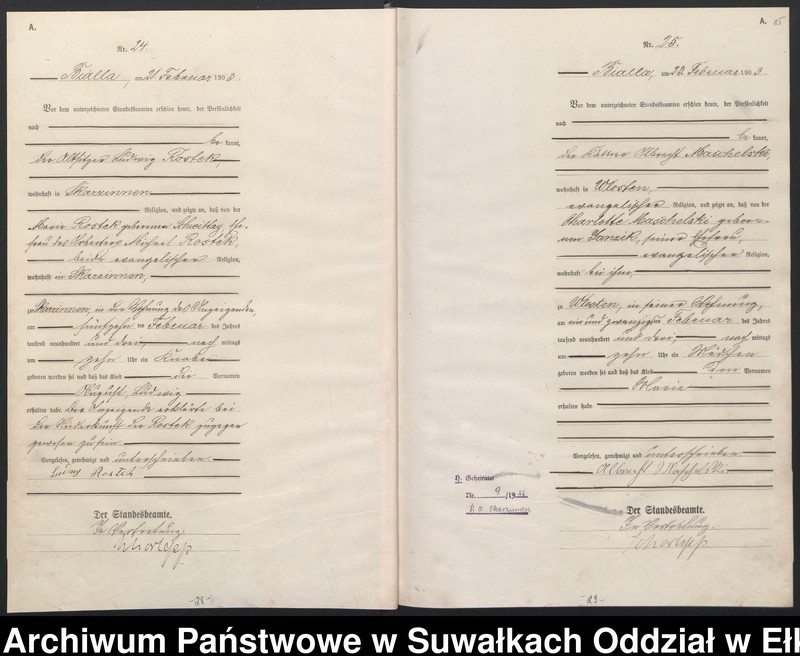 A.
Nr. 24.
Bialla, am 21 Februar 1903.
Vor dem unterzeichneten Standesbeamten erschien heute, der Persönlichkeit
nach
be kannt,
der Altsitzer Ludwig Rostek,
wohnhaft in Skarzinnen
Religion, und zeigte an, daß von der
Marie Rostek geborene Ehe-
frau des Michael Rostek,
beide evangelischer Religion,
wohnhaft in Skarzinnen,
zu Skarzinnen, in der Wohnung des Anzeigenden,
am fünfzehn ten Februar des Jahres
tausend neunhundert und drei, nach mittags
um zehn Uhr ein Knabe
geboren worden sei und daß das Kind die Vornamen
August, Ludwig
erhalten habe. Der Anzeigende erklärte bei
der Niederkunft der Rostek zugegen
gewesen zu sein.
Vorgelesen, genehmigt und unterschrieben.
Rostek
Der Standesbeamte.
In Vertretung.
-28-
A. 25
Nr. 25.
Bialla, am 23 Februar 1903
Vor dem unterzeichneten Standesbeamten erschien heute, der Persönlichkeit
nach
be kannt,
der Käthner Albrecht Maschelski,
wohnhaft in Wlosten,
evangelischer Religion, und zeigte an, daß von der
Charlotte Maschelski gebore-
nen seiner Ehefrau,
evangelischer Religion,
wohnhaft bei ihm,
zu Wlosten, in seiner Wohnung,
am ein und zwanzigsten Februar des Jahres
tausend neunhundert und drei, nach mittags
um zehn Uhr ein Mädchen
geboren worden sei und daß das Kind den Vornamen
Marie
erhalten habe
Vorgelesen, genehmigt und unterschrieben
Albrecht Maschelski
H. Geheiratet
Nr. 9/19
Der Standesbeamte.
In Vertretung.
-29-
Archiwum Państwowe w Suwałkach Oddział w Ełk